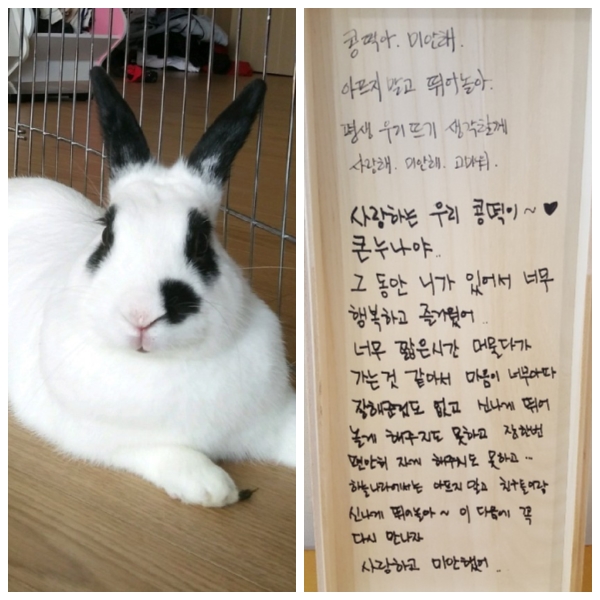 콩떡아. 미안해.
아프지 말고 뛰어놀아.
평생 우리 뜨기 생각할게
사랑해. 미안해. 고마워.
사랑하는 우리 콩떡이~ ♥
큰누나야..
그 동안 니가 있어서 너무
행복하고 즐거웠어..
너무 짧은시간 머물다가
가는것 같아서 마음이 너무아파
잘해준것도 없고 신나게 뛰어
놀게 해주지도 못하고 잠한번
편안히 자게 해주지도 못하고…
하늘나라에서는 아프지 말고 친구들이랑
신나게 뛰어놀아~ 이 다음에 꼭
다시 만나자
사랑하고 미안했어..